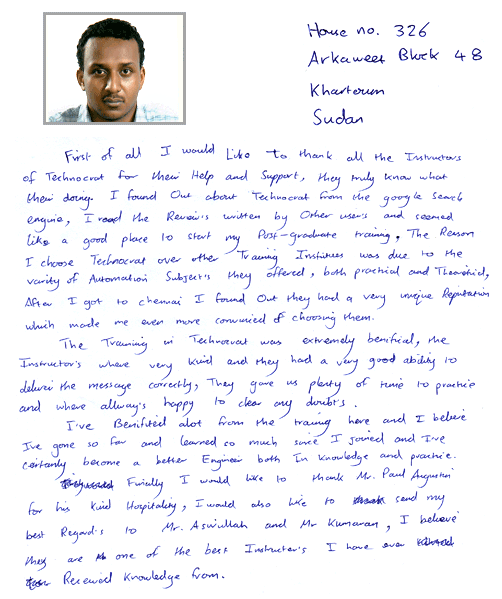 House no. 326
Arkaweet Block 48
Khartoum
Sudan
First of all I would Like to thank all the Instructors
of Technocrat for their Help and Support, they truly know what
their doing. I found Out about Technocrat from the google Search
engine, I read the Reviews written by Other users and seemed
like a good place to start my Post-graduate training, The Reason
I choose Technocrat over other Training Institues was due to the
varity of Automation Subject's they offered, both practical and Theoritical,
After I got to chennai I found Out they had a very unique Reputation
which made me even more convinced of choosing them.
The Training in Technocrat was extremely benificial, the
Instructor's where very kind and they had a very good ability to
deliver the message correctly, They gave us plenty of time to practice
and where allway's happy to clear any doubt's.
I've Benifited alot from the traing here and I believe
I've gone so far and learned so much since I joined and I've
certainly become a better Engineer both In knowledge and practice.
Finially I would like to thank Mr. Paul Augustin
for his Kind Hospitality, I would also like to send my
best Regard's to Mr. and Mr Kumaran, I believe
they are one of the best Instructor's I have ever
Received Knowledge from.